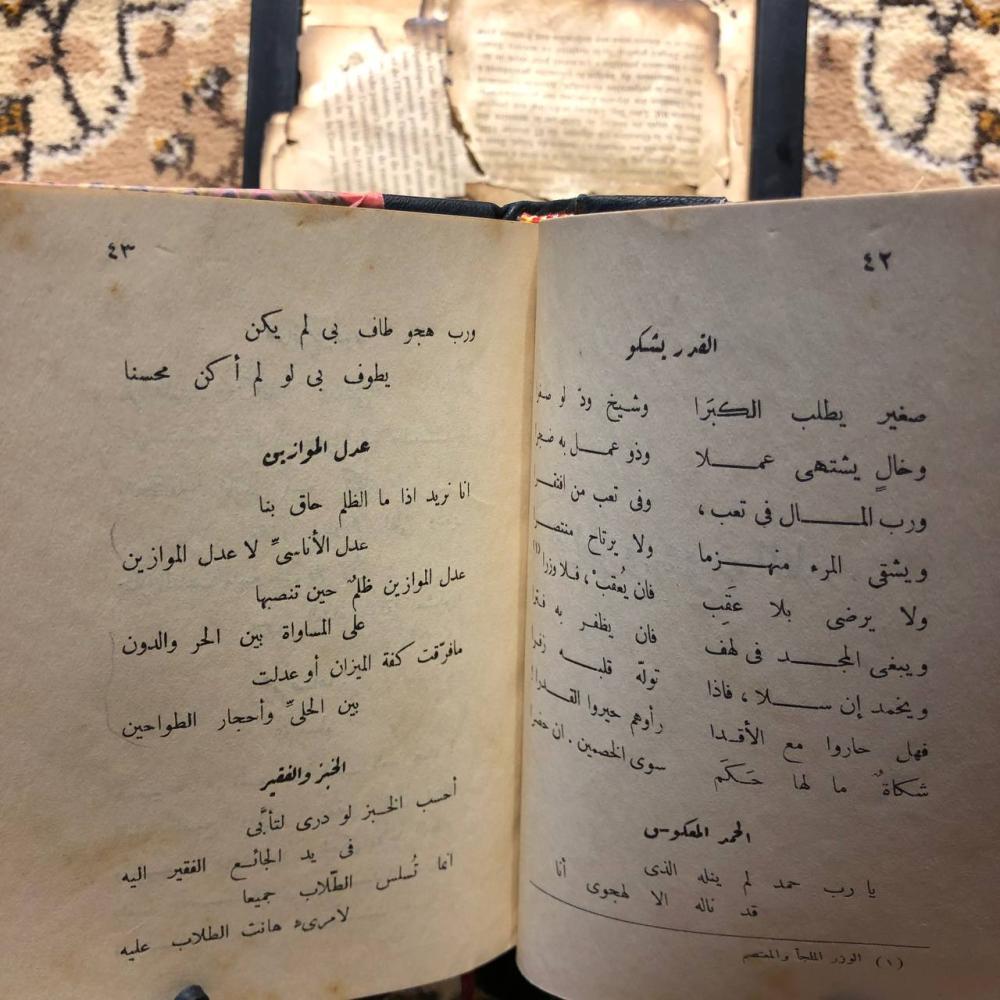 ٤٢
القدر يشكو
صغير يطلب الكبَرا وشيخ ودّ لو صغرا
وخالٍ يشتهى عملا وذو عمل به ضجرا
ورب المال فى تعب، وفى تعب من افتقرا
ويشقى المرء منهزما ولا يرتاح منتصرا
ولا يرضى بلا عَقِب فان يُعقبْ، فلا وزرا (١)
ويبغى المجد فى لهف فان يظفر به فترا
ويخمد إن سلا، فاذا تولّه قلبه زفرا
فهل حاروا مع الأقدا رأوهم حيروا القدرا!
شكاةٌ ما لها حَكَم سوى الخصمين. ان حضرا
الحمد المعكوس
يا رب حمد لم ينله الذى
قد ناله الا لهجوى أنا
(١) الوزر الملجأ والمعتصم
٤٣
ورب هجو طاف بى لم يكن
يطوف بى لو لم أكن محسنا
عدل الموازين
انا نريد اذا ما الظلم حاق بنا
عدل الأناسىِّ لا عدل الموازين
عدل الموازين ظلمٌ حين تنصبها
على المساواة بين الحر والدون
مافرّقت كفة الميزان أو عدلت
بين الحلىِّ وأحجار الطواحين
الخبز والفقير
أحسب الخبز لو درى لتأبَّى
فى يد الجائع الفقير اليه
انما تُسلس الطّلاب جميعا
لامرىء هانت الطلاب عليه